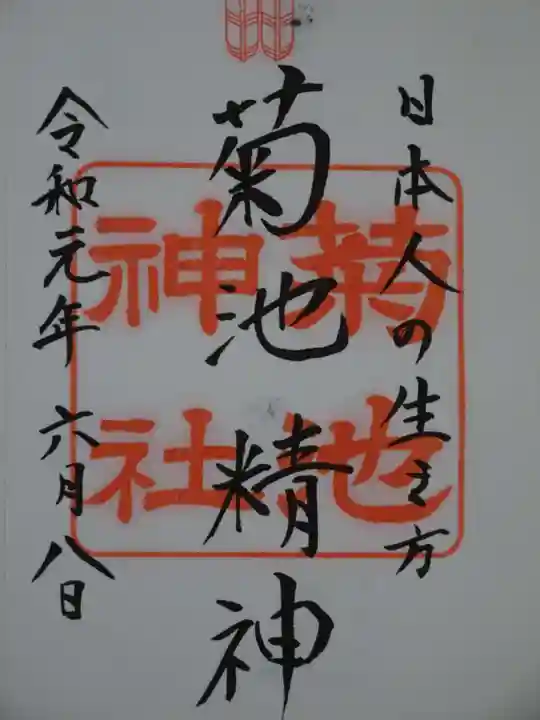 日本人の生き方
菊池精神
令和元年 六月八日
菊池
神社